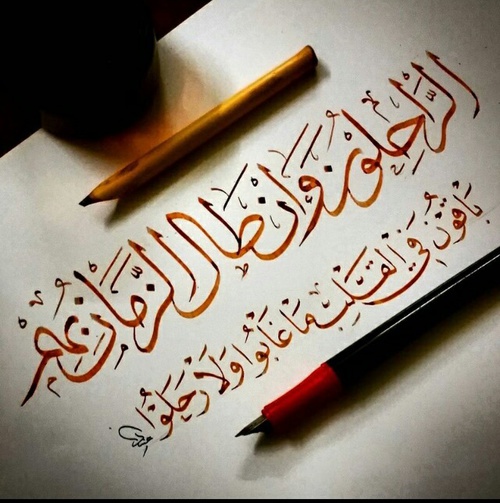 الرَّاحِلُون وَإن طَال الزَّمَان بِهِم
بَاقُونَ فِي القَلبِ مَا غَابُوا وَلَا رَحَلُوا